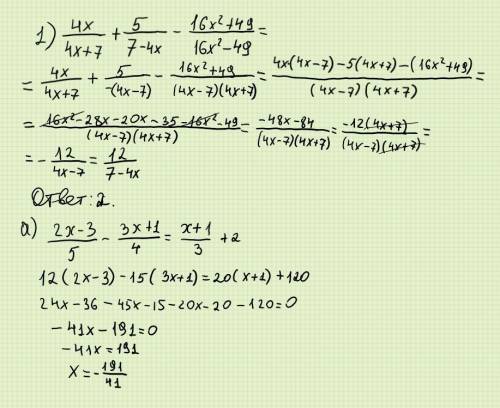 1) 4x/(4x+7) + 5/(7-4x) - (16x²+49)/(16x²-49) =
= 4x/(4x+7) + 5/(-(4x-7)) - (16x²+49)/((4x-7)(4x+7)) = (4x(4x-7)-5(4x+7)-(16x²+49))/((4x-7)(4x+7)) =
= (16x²-28x-20x-35-16x²-49)/((4x-7)(4x+7)) = (-48x-84)/((4x-7)(4x+7)) = (-12(4x+7))/((4x-7)(4x+7)) =
= - 12/(4x-7) = 12/(7-4x)
Ответ: 2.
а) (2x-3)/5 - (3x+1)/4 = (x+1)/3 + 2
12(2x-3)-15(3x+1)=20(x+1)+120
24x-36-45x-15-20x-20-120=0
-41x-191=0
-41x=191
x=-191/41